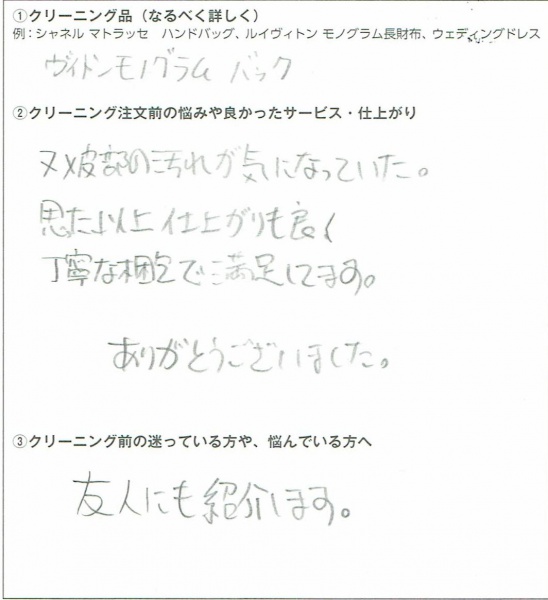 ①クリーニング品（なるべく詳しく）
例：シャネル マトラッセ　ハンドバッグ、ルイヴィトン モノグラム長財布、ウェディングドレス
ヴィトンモノグラム バック
②クリーニング注文前の悩みや良かったサービス・仕上がり
ヌメ皮部の汚れが気になっていた。
思た以上 仕上がりも良く
丁寧な梱包で満足してます。
ありがとうございました。
③クリーニング前の迷っている方や、悩んでいる方へ
友人にも紹介します。